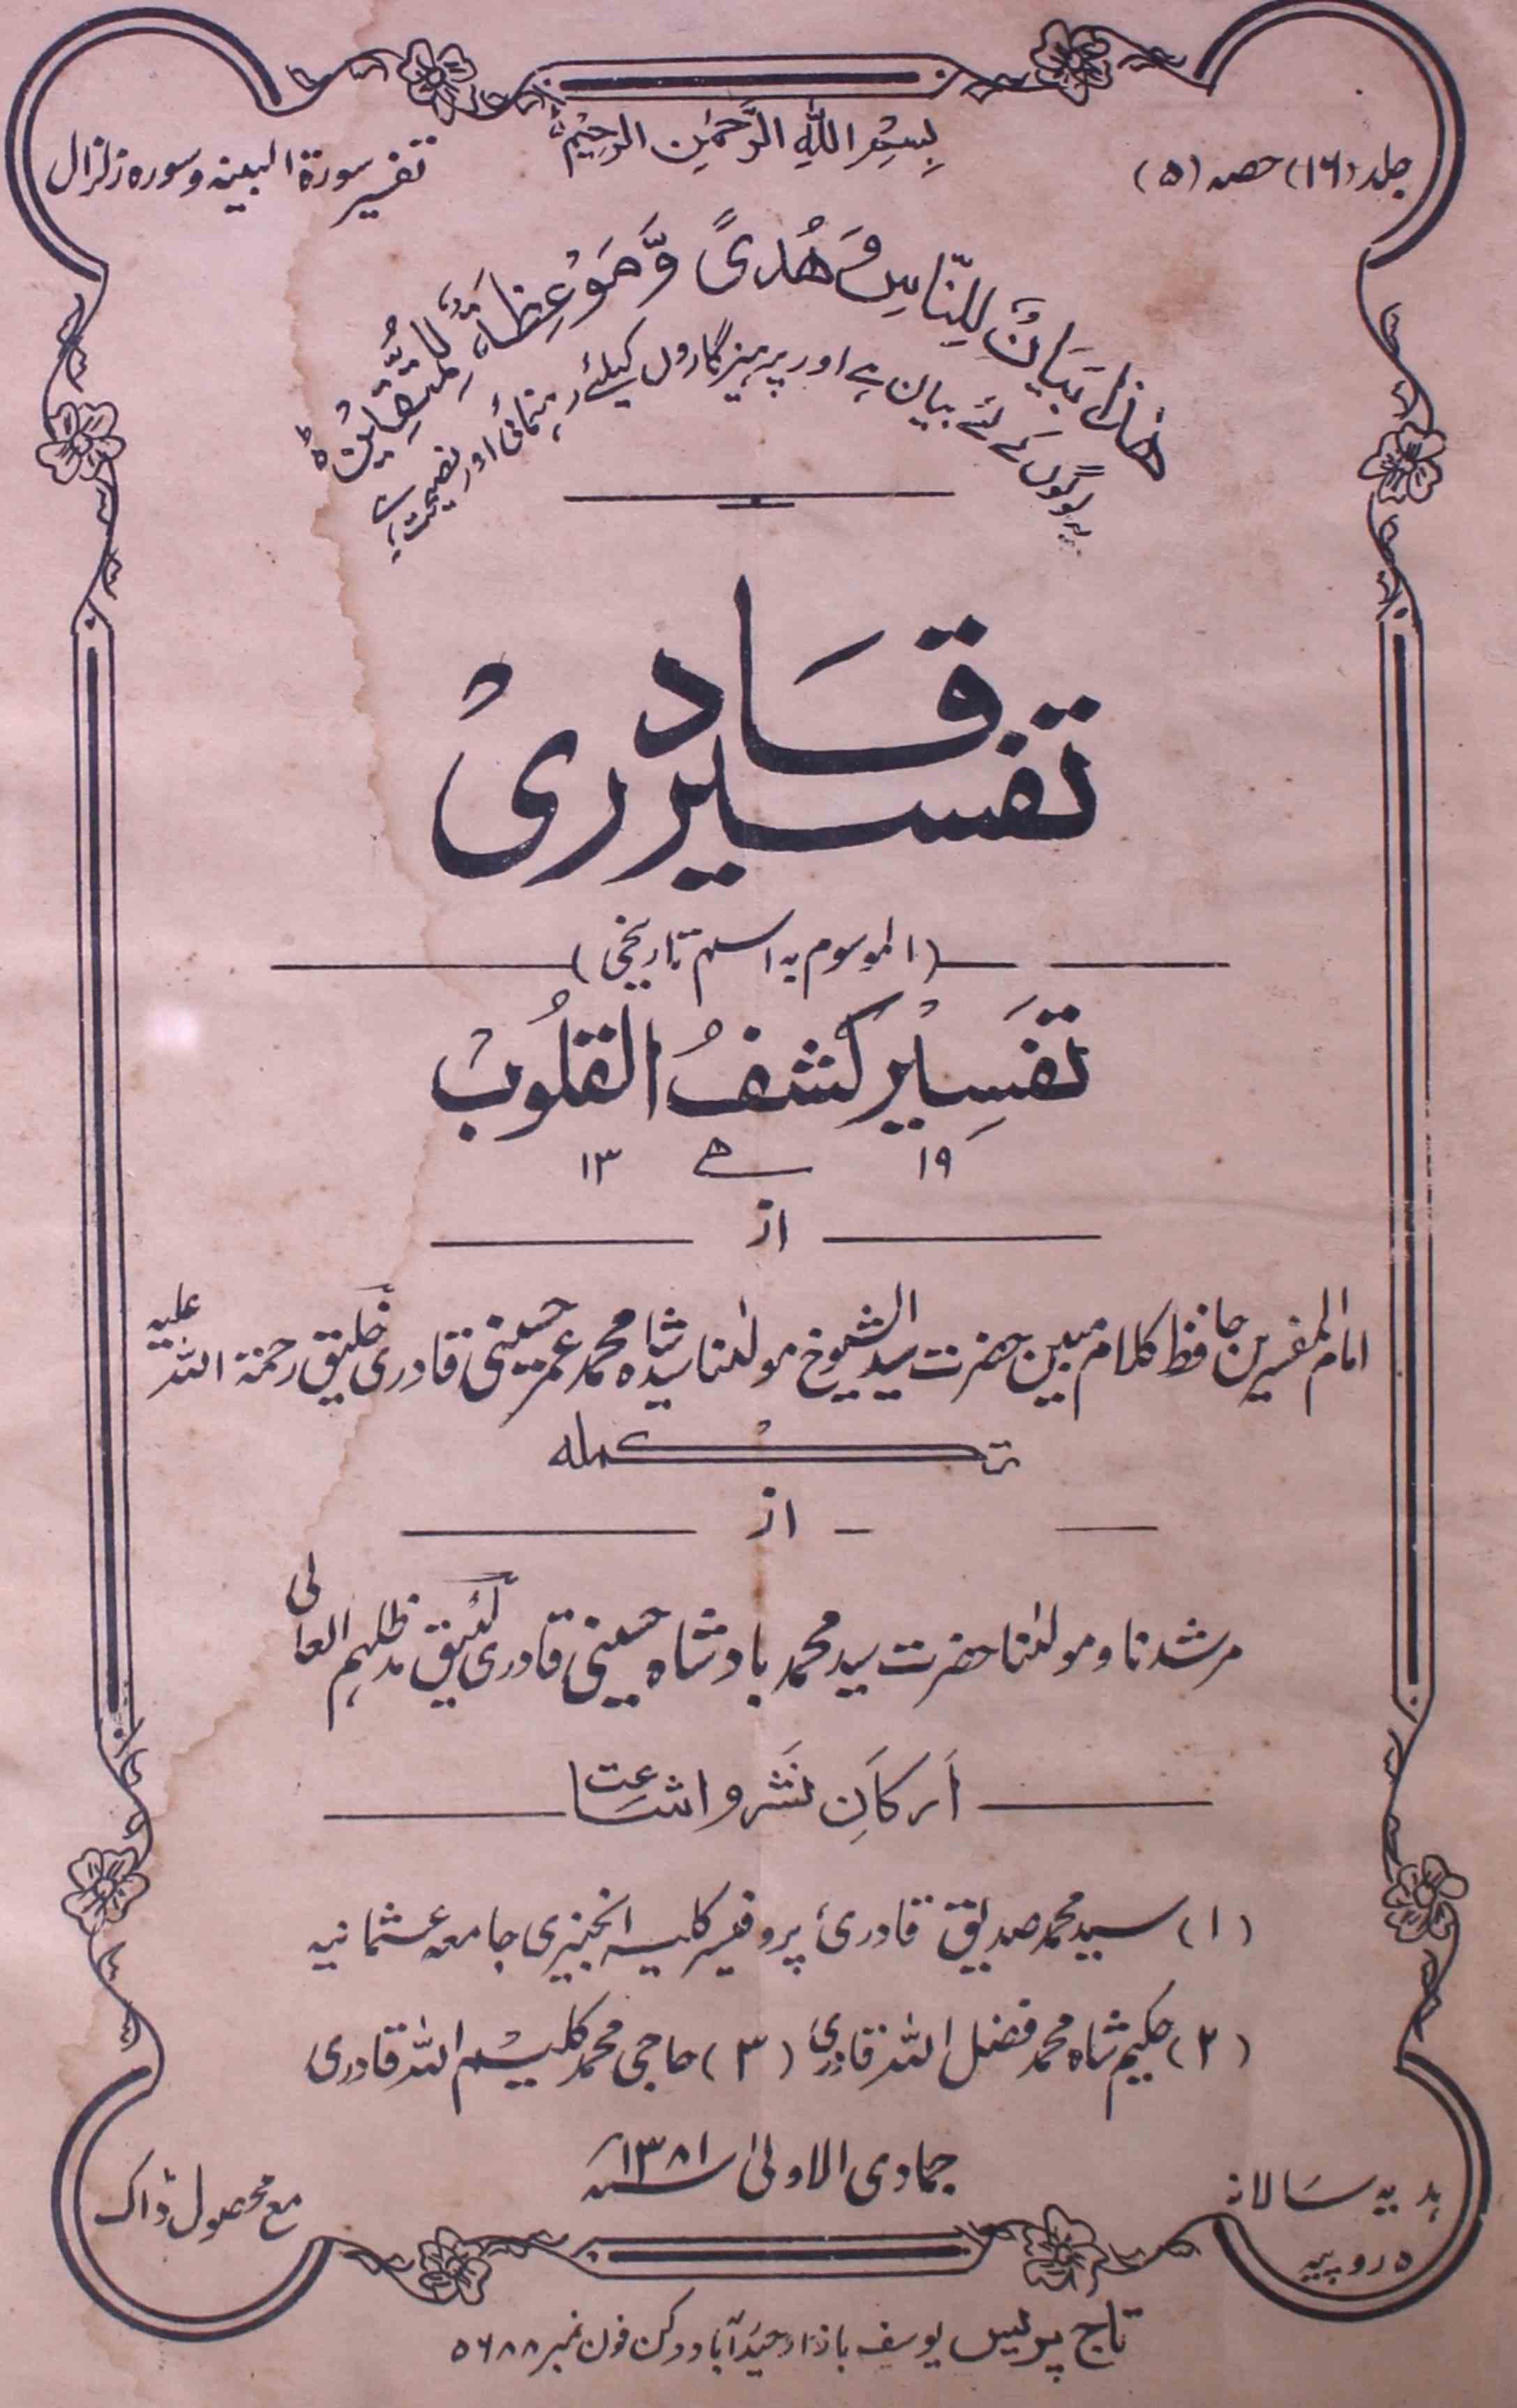 جلد (۱۶) حصہ (۵)
بِسْمِ اللهِ الرَّحْمٰنِ الرَّحِيْمِ
تفسیر سورۃ البینہ و سورہ زلزال
هٰذَا بَيَانٌ لِّلنَّاسِ وَهُدًى وَّمَوْعِظَةٌ لِّلْمُتَّقِيْنَ ط
یہ لوگوں کے لئے بیان ہے اور پرہیزگاروں کیلئے رہنمائی اور نصیحت ہے
تفسیر قادری
(الموسوم بہ اسم تاریخی)
تفسیر کشف القلوب
۱۹ ھ ۱۳
از
امام المفسرین حافظ کلام مبین حضرت سید الشیوخ مولٰنا سید شاہ محمد عمر حسینی قادری خلیق رحمۃ اللہ علیہ
تکملہ
از
مرشدنا و مولٰنا حضرت سید محمد بادشاہ حسینی قادری لئیق مدظلہم العالی
ارکان نشر و اشاعت
(۱) سید محمد صدیق قادری پروفیسر کلیہ انجنیری جامعہ عثمانیہ
(۲) حکیم شاہ محمد فضل اللہ قادری (۳) حاجی محمد کلیم اللہ قادری
جمادی الاولیٰ سنہ ۱۳۸۱
ہدیہ سالانہ
۵ روپیہ
مع محصول ڈاک
تاج پریس یوسف بازار حیدرآباد دکن فون نمبر ۵۶۸۸